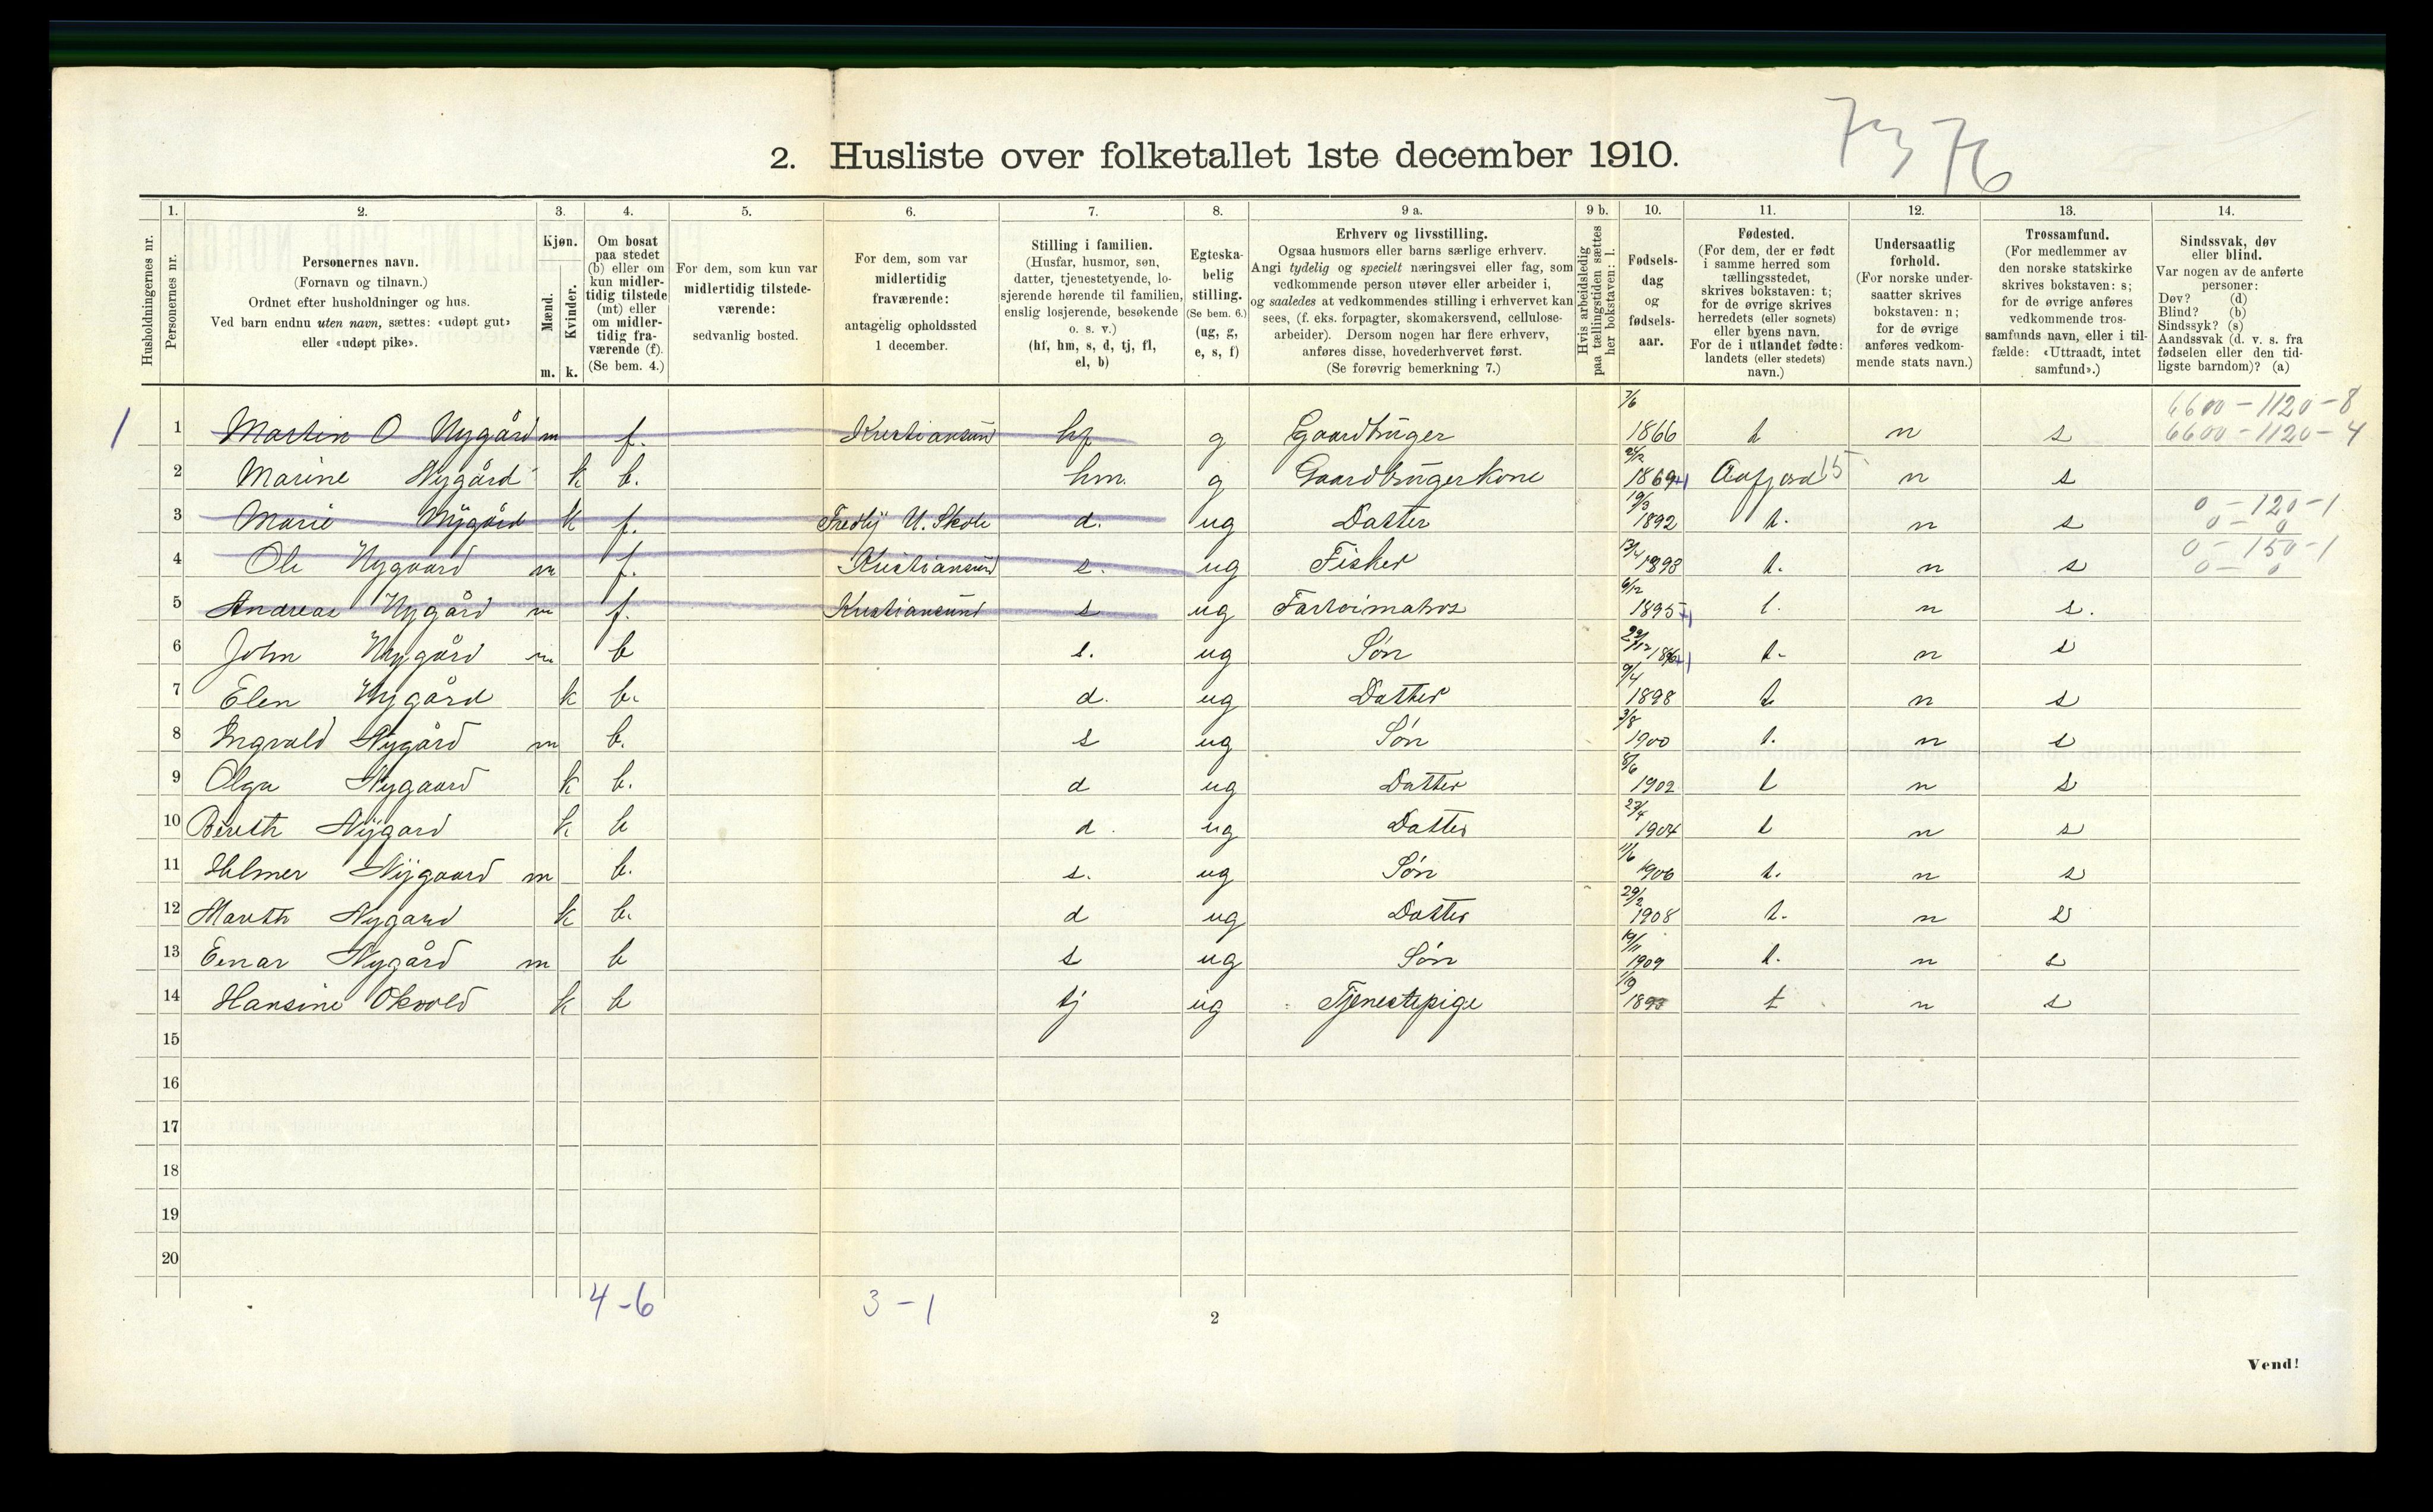 73 76
2. Husliste over folketallet 1ste december 1910.
Husholdningernes nr.
1. Personernes nr.
2. Personernes navn.
(Fornavn og tilnavn.)
Ordnet efter husholdninger og hus.
Ved barn endnu uten navn, sættes: «udøpt gut»
eller «udøpt pike».
3. Kjøn.
Mænd. m.
Kvinder. k.
4. Om bosat
paa stedet
(b) eller om
kun midler-
tidig tilstede
(mt) eller
om midler-
tidig fra-
værende (f).
(Se bem. 4.)
5. For dem, som kun var
midlertidig tilstede-
værende:
sedvanlig bosted.
6. For dem, som var
midlertidig
fraværende:
antagelig opholdssted
1 december.
7. Stilling i familien.
(Husfar, husmor, søn,
datter, tjenestetyende, lo-
sjerende hørende til familien,
enslig losjerende, besøkende
o. s. v.)
(hf, hm, s, d, tj, fl,
el, b)
8. Egteska-
belig
stilling.
(Se bem. 6.)
(ug, g,
e, s, f)
9 a. Erhverv og livsstilling.
Ogsaa husmors eller barns særlige erhverv.
Angi tydelig og specielt næringsvei eller fag, som
vedkommende person utøver eller arbeider i,
og saaledes at vedkommendes stilling i erhvervet kan
sees, (f. eks. forpagter, skomakersvend, cellulose-
arbeider). Dersom nogen har flere erhverv,
anføres disse, hovederhvervet først.
(Se forøvrig bemerkning 7.)
9 b. Hvis arbeidsledig
paa tællingstiden sættes
her bokstaven: l.
10. Fødsels-
dag
og
fødsels-
aar.
11. Fødested.
(For dem, der er født
i samme herred som
tællingsstedet,
skrives bokstaven: t;
for de øvrige skrives
herredets (eller sognets)
eller byens navn.
For de i utlandet fødte:
landets (eller stedets)
navn.)
12. Undersaatlig
forhold.
(For norske under-
saatter skrives
bokstaven: n;
for de øvrige
anføres vedkom-
mende stats navn.)
13. Trossamfund.
(For medlemmer av
den norske statskirke
skrives bokstaven: s;
for de øvrige anføres
vedkommende tros-
samfunds navn, eller i til-
fælde: «Uttraadt, intet
samfund».)
14. Sindssvak, døv
eller blind.
Var nogen av de anførte
personer:
Døv? (d)
Blind? (b)
Sindssyk? (s)
Aandssvak (d. v. s. fra
fødselen eller den tid-
ligste barndom)? (a)
6600 - 1120 - 8
1 1 Martin O Nygård m f. Kristiansund hf g Gaardbruger 7/6 1866 t n s 6600 - 1120 - 4
2 Marine Nygård k b. hm. g Gaardbrugerkone 1869 Aafjord 15 n s
3 Marie Nygård k f. Fredly U. Skole d. ug Datter 19/3 1892 t. n s 0 - 120 - 1
0 - 0
4 Ole Nygaard m f. Kristiansund s. ug Fisker 13/4 1893 t. n s 0 - 150 - 1
0 - 0
5 Andreas Nygård m f. Kristiansund s ug Fartøimatros 6/12 1895 t. n s.
6 John Nygård m b s. ug Søn 1896 t. n s
7 Elen Nygård k b. d. ug Datter 9/4 1898 t n s
8 Ingvald Nygård m b. s ug Søn 3/8 1900 t. n s
9 Olga Nygaard k b. d ug Datter 8/6 1902 t n s
10 Bereth Nygard k b d. ug Datter 27/4 1904 t n s
11 Hilmer Nygaard m b. s. ug Søn 11/6 1906 t. n s
12 Mareth Nygard k b. d ug Datter 29/2 1908 t. n s
13 Einar Nygård m b s ug Søn 19/11 1909 t. n s
14 Hansine Okvold k b tj ug Tjenestepige t n s
15
16
17
18
19
20
4 - 6 3 - 1
2
Vend!